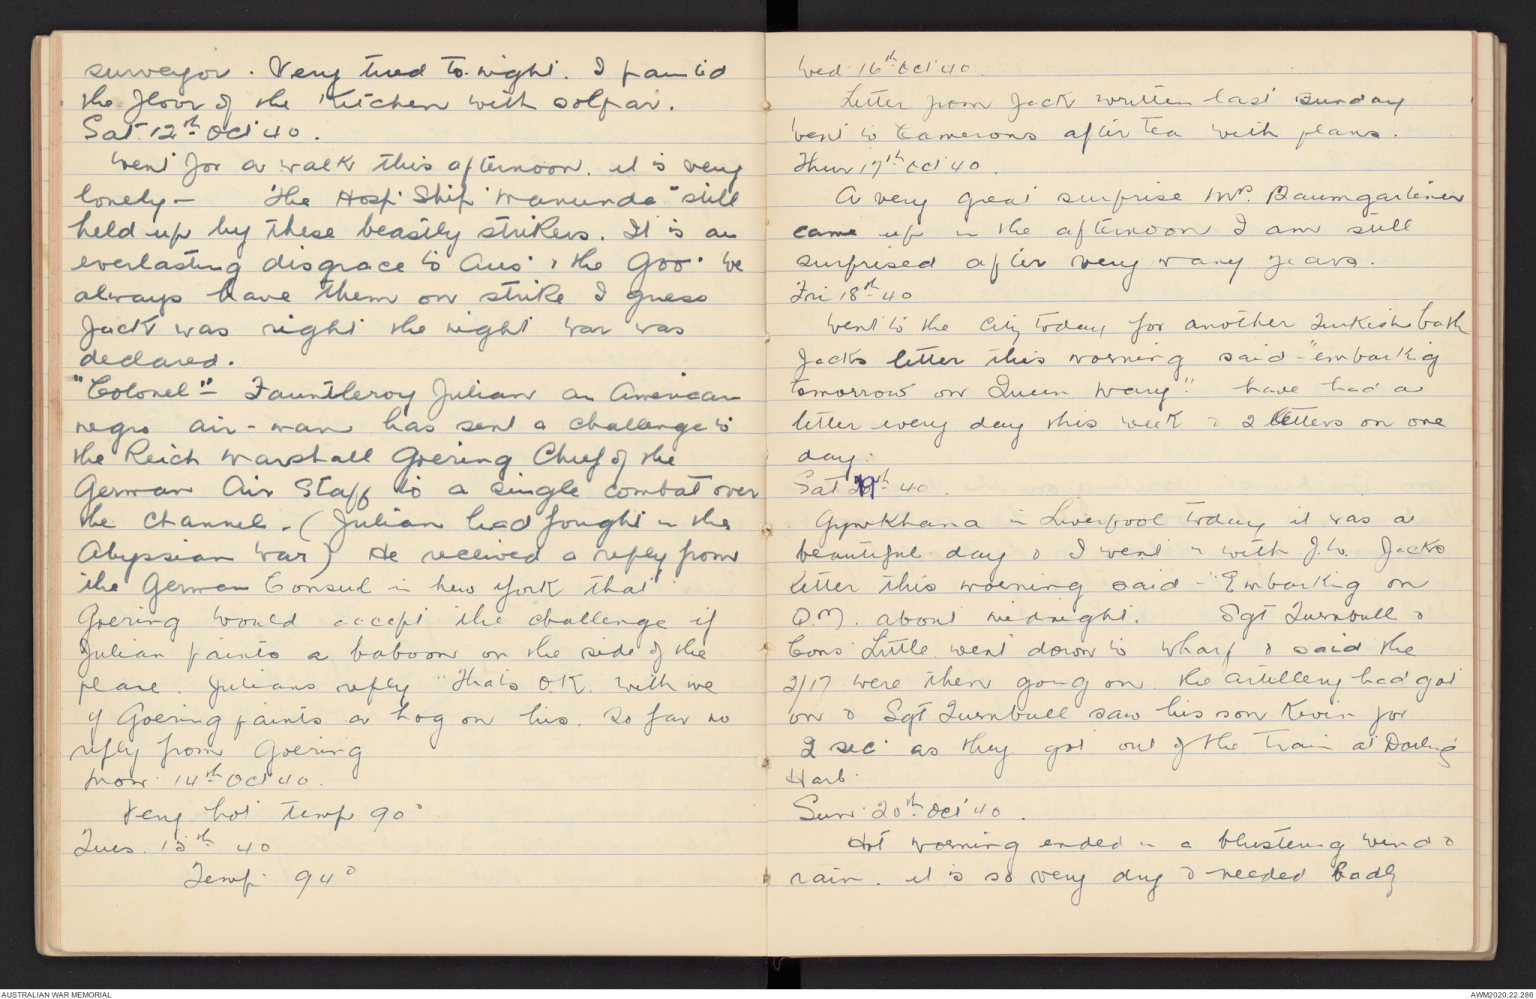 surveyor. Very tired to-night. I painted
the floor of the kitchen with solpar.
Sat 12th Oct 40.
Went for a walk this afternoon. it is very
lonely – The Hosp. Ship "Manunda" still
held up by these beastly strikers. It is an
everlasting disgrace to Aus. & the Gov. We
always have them on strike I guess
Jack was right the night war was
declared.
"Colonel" – Fauntleroy Julian an American
negro air-man has sent a challenge to
the Reich Marshall Goering Chief of the
German Air Staff to a single combat over
the channel. (Julian had fought in the
Abyssian War) He received a reply from
the German Consul in New York that
Goering would accept the challenge if
Julian paints a baboon on the side of the
plane. Julians reply "Thats O.K. with me
if Goering paints a hog on his. So far no
reply from Goering
Mon. 14th Oct 40.
Very hot temp 90°
Tues. 15th 40
Temp. 94°
Wed. 16th Oct 40.
Letter from Jack written last Sunday
Went to Camerons after tea with plans.
Thur 17th Oct 40.
A very great surprise Mr. Baumgartener
came up in the afternoon I am still
surprised after very many years.
Fri 18th 40
Went to the city today for another Turkish bath
Jacks letter this morning said – "embarkig
tomorrow on Queen Mary" have had a
letter every day this week & 2 letters on one
day.
Sat 19th 40.
Gymkhana in Liverpool today it was a
beautiful day & I went in with J.W. Jacks
letter this morning said – "Embarkig on
Q.M. about midnight. Sgt Turnbull &
Cons Little went down to wharf & said the
2/17 were then going on the artillery had got
on & Sgt Turnbull saw his son Kevin for
2 sec. as they got out of the train at Darling
Harb.
Sun. 20th Oct 40.
Hot morning ended in a blustering wind &
rain. it is so very dry & needed badly
AUSTRALIAN WAR MEMORIAL
AWM2020.22.286